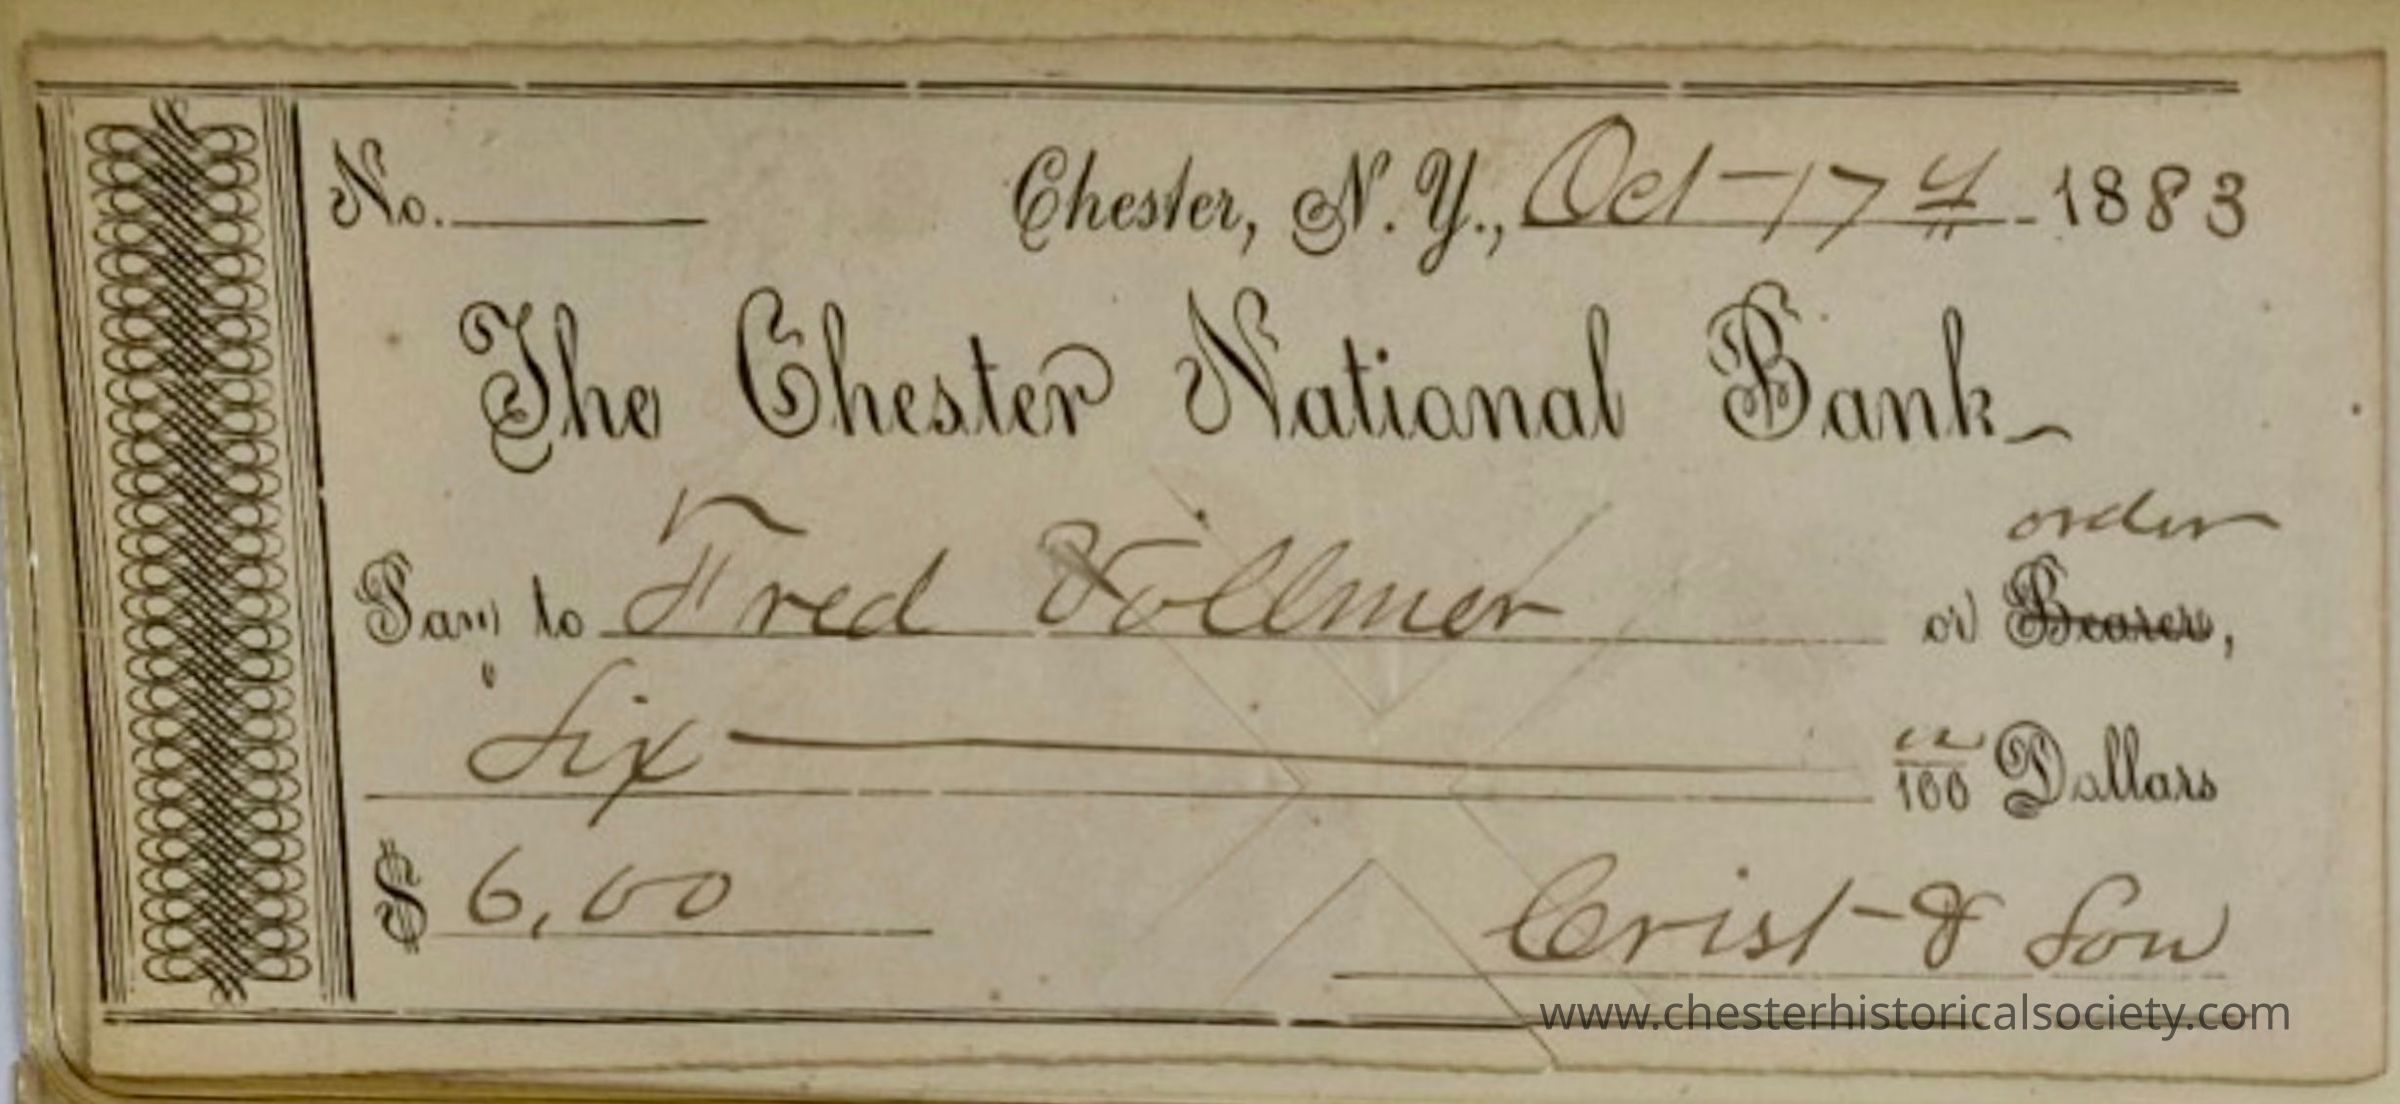 No. Chester, N.Y., Oct-17th 1883
The Chester National Bank
order
Pay to Fred Vollmer or Bearer,
Six 00/100 Dollars
$ 6,00 Crist & Son
www.chesterhistoricalsociety.com